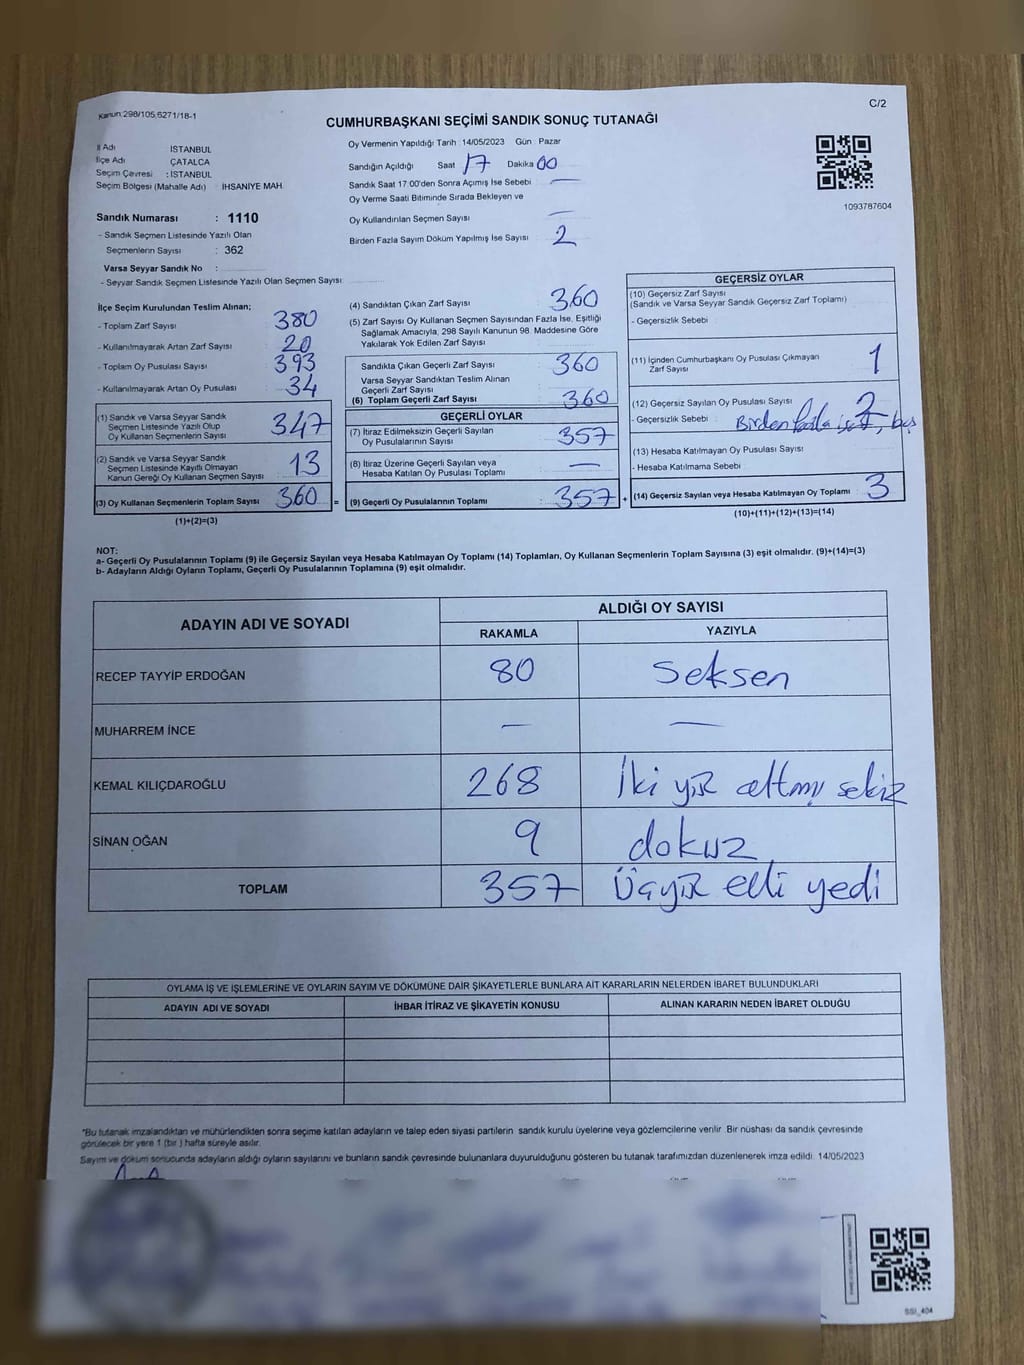 Kanun:298/105,6271/18-1
C/2
CUMHURBAŞKANI SEÇİMİ SANDIK SONUÇ TUTANAĞI
İl Adı İSTANBUL
İlçe Adı ÇATALCA
Seçim Çevresi : İSTANBUL
Seçim Bölgesi (Mahalle Adı) İHSANİYE MAH
Sandık Numarası : 1110
- Sandık Seçmen Listesinde Yazılı Olan
Seçmenlerin Sayısı : 362
Varsa Seyyar Sandık No :
- Seyyar Sandık Seçmen Listesinde Yazılı Olan Seçmen Sayısı:
Oy Vermenin Yapıldığı Tarih :14/05/2023 Gün : Pazar
Sandığın Açıldığı Saat 17 Dakika 00
Sandık Saat 17:00'den Sonra Açımış İse Sebebi —
Oy Verme Saati Bitiminde Sırada Bekleyen ve
Oy Kullandırılan Seçmen Sayısı —
Birden Fazla Sayım Döküm Yapılmış İse Sayısı 2
1093787604
İlçe Seçim Kurulundan Teslim Alınan;
- Toplam Zarf Sayısı 380
- Kullanılmayarak Artan Zarf Sayısı 20
- Toplam Oy Pusulası 393
- Kullanılmayarak Artan Oy Pusulası 34
(1) Sandık ve Varsa Seyyar Sandık
Seçmen Listesinde Yazılı Olup
Oy Kullanan Seçmenlerin Sayısı 347
(2) Sandık ve Varsa Seyyar Sandık
Seçmen Listesinde Kayıtlı Olmayan
Kanun Gereği Oy Kullanan Seçmen Sayısı 13
(3) Oy Kullanan Seçmenlerin Toplam Sayısı 360 =
(1)+(2)=(3)
(4) Sandıktan Çıkan Zarf Sayısı 360
(5) Zarf Sayısı Oy Kullanan Seçmen Sayısından Fazla İse, Eşitliği
Sağlamak Amacıyla, 298 Sayılı Kanunun 98. Maddesine Göre
Yakılarak Yok Edilen Zarf Sayısı
Sandıkta Çıkan Geçerli Zarf Sayısı 360
Varsa Seyyar Sandıktan Teslim Alınan
Geçerli Zarf Sayısı
(6) Toplam Geçerli Zarf Sayısı 360
GEÇERLİ OYLAR
(7) İtiraz Edilmeksizin Geçerli Sayılan
Oy Pusulalarının Sayısı 357
(8) İtiraz Üzerine Geçerli Sayılan veya
Hesaba Katılan Oy Pusulası Toplamı —
(9) Geçerli Oy Pusulalarının Toplamı : 357 +
GEÇERSİZ OYLAR
(10) Geçersiz Zarf Sayısı
(Sandık ve Varsa Seyyar Sandık Geçersiz Zarf Toplamı)
- Geçersizlik Sebebi
(11) İçinden Cumhurbaşkanı Oy Pusulası Çıkmayan
Zarf Sayısı 1
(12) Geçersiz Sayılan Oy Pusulası Sayısı 2
- Geçersizlik Sebebi Birden fazla
(13) Hesaba Katılmayan Oy Pusulası Sayısı
- Hesaba Katılmama Sebebi
(14) Geçersiz Sayılan veya Hesaba Katılmayan Oy Toplamı 3
(10)+(11)+(12)+(13)=(14)
NOT:
a- Geçerli Oy Pusulalarının Toplamı (9) ile Geçersiz Sayılan veya Hesaba Katılmayan Oy Toplamı (14) Toplamları, Oy Kullanan Seçmenlerin Toplam Sayısına (3) eşit olmalıdır. (9)+(14)=(3)
b- Adayların Aldığı Oyların Toplamı, Geçerli Oy Pusulalarının Toplamına (9) eşit olmalıdır.
ADAYIN ADI VE SOYADI ALDIĞI OY SAYISI
RAKAMLA YAZIYLA
RECEP TAYYİP ERDOĞAN 80 Seksen
MUHARREM İNCE — —
KEMAL KILIÇDAROĞLU 268 İki yüz altmış sekiz
SİNAN OĞAN 9 dokuz
TOPLAM 357 Üçyüz elli yedi
OYLAMA İŞ VE İŞLEMLERİNE VE OYLARIN SAYIM VE DÖKÜMÜNE DAİR ŞİKAYETLERLE BUNLARA AİT KARARLARIN NELERDEN İBARET BULUNDUKLARI
ADAYIN ADI VE SOYADI İHBAR İTİRAZ VE ŞİKAYETİN KONUSU ALINAN KARARIN NEDEN İBARET OLDUĞU
*Bu tutanak imzalandıktan ve mühürlendikten sonra seçime katılan adayların ve talep eden siyasi partilerin sandık kurulu üyelerine veya gözlemcilerine verilir. Bir nüshası da sandık çevresinde
görülecek bir yere 1 (bir ) hafta süreyle asılır.
Sayım ve döküm sonucunda adayların aldığı oyların sayılarını ve bunların sandık çevresinde bulunanlara duyurulduğunu gösteren bu tutanak tarafımızdan düzenlenerek imza edildi. 14/05/2023
SSI_404